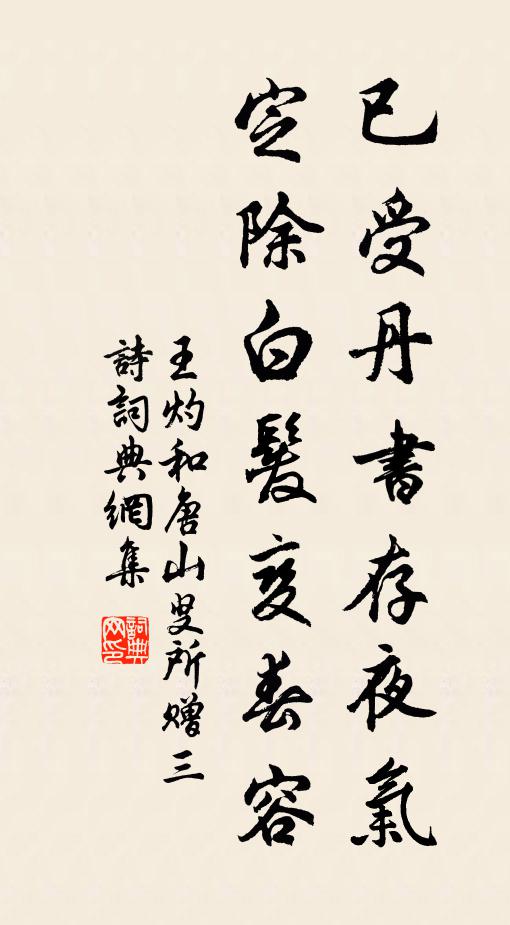 已受丹書存夜氣
定除白髮变春容
王灼和唐山叟所贈三
詩詞典網集
詞典网印